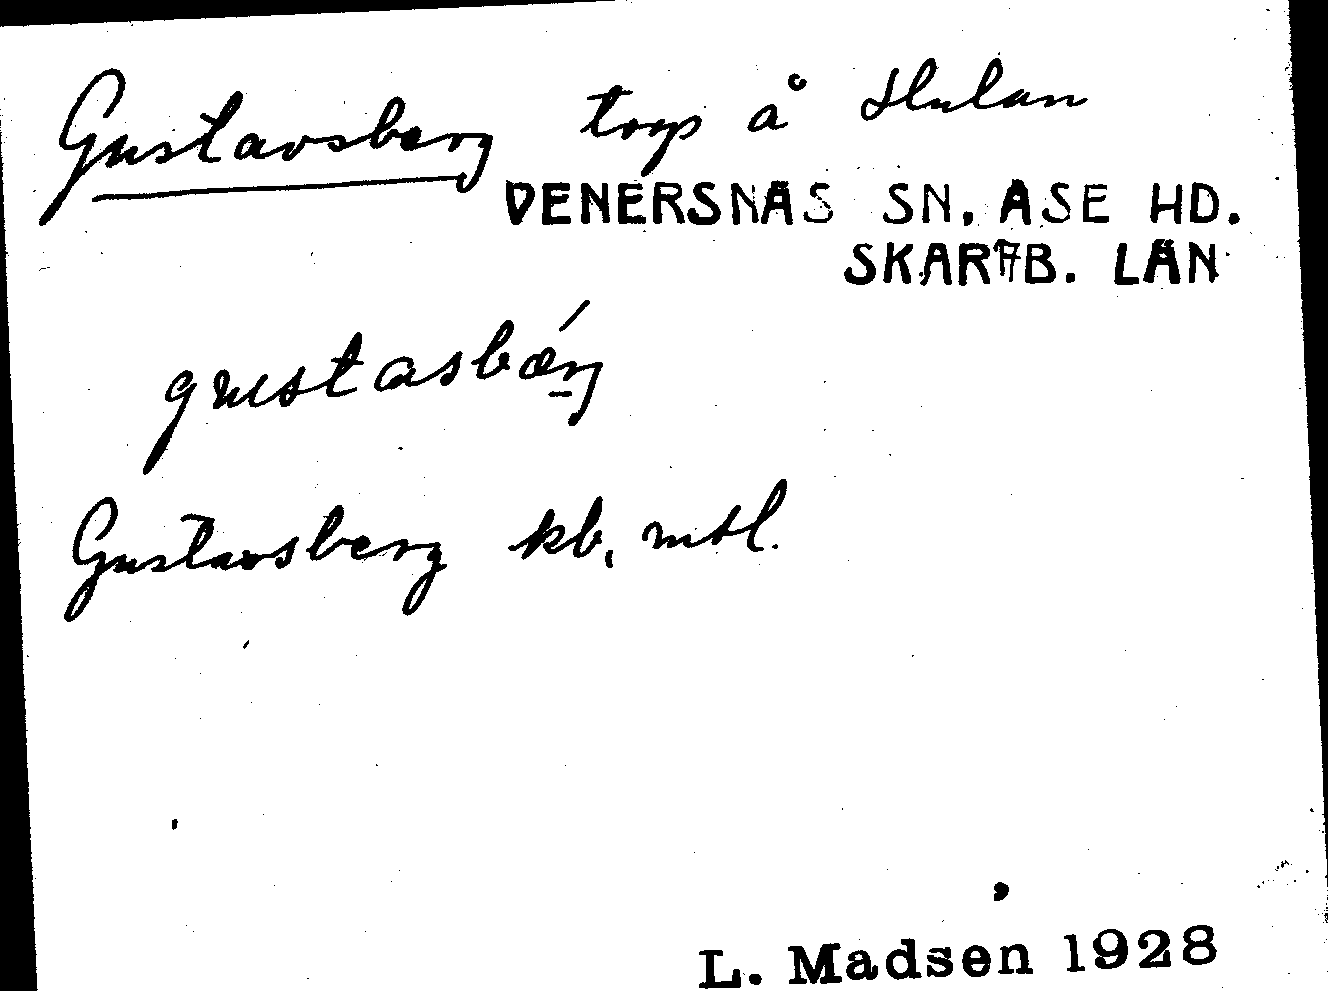 Gustavsberg torp å Hulan
VENERSNÄS SN. ÅSE HD.
SKARAB. LÄN
gustasbærj
Gustavsberg kb, mtl.
L. Madsen 1928